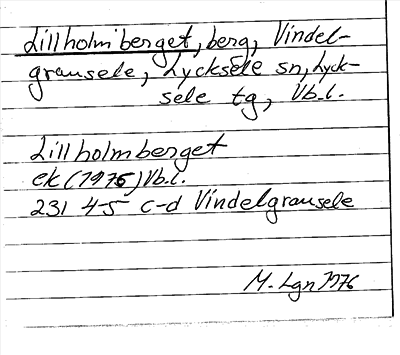 Lillholmberget, berg, Vindel-
gransele, Lycksele sn, Lyck-
sele tg, Vb.l.
Lillholmberget
ek (1975) Vb.l.
231 4-5 c-d Vindelgransele
M. Lgn 1976